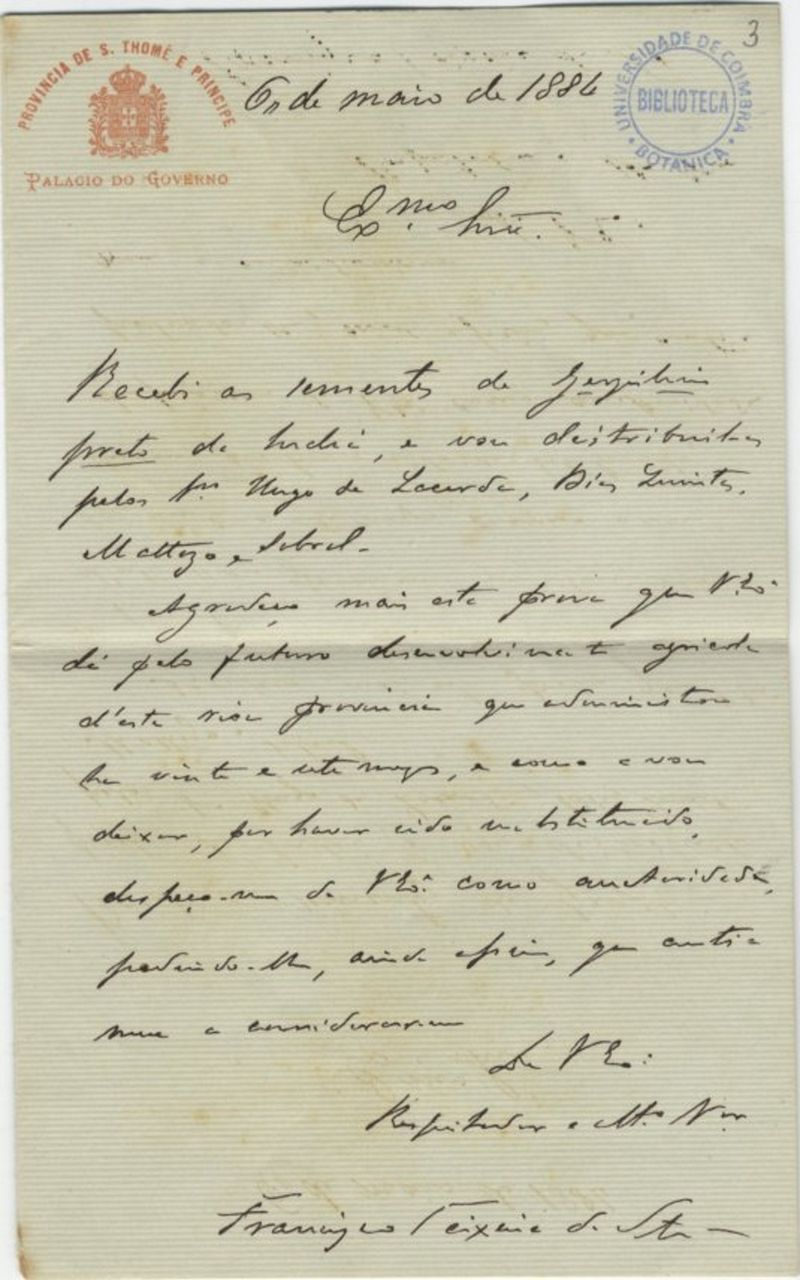 3
PROVINCIA DE S. THOMÉ E PRINCIPE
PALACIO DO GOVERNO
UNIVERSIDADE DE COIMBRA
BIBLIOTECA
BOTANICA
6 de maio de 1886
Ex.mo Snr.
Recebi as sementes de Gergilim
preto da India, e vou distribuil-as
pelos Snrs Hugo de Lacerda, Dias
Mattozo e Sobral.
Agradeço mais esta prova que V. Ex.ª
dá pelo futuro desenvolvimento agricola
d'esta rica provincia que administro
ha vinte e sete mezes, e como a vou
deixar, por haver sido substituido,
despeço-me de V. Ex.ª como auctoridade,
pedindo-lhe, ainda assim, que conti-
nue a considerar-me
De V. Ex.ª
Respeitador e Mt.º V.or
Francisco Teixeira da Silva